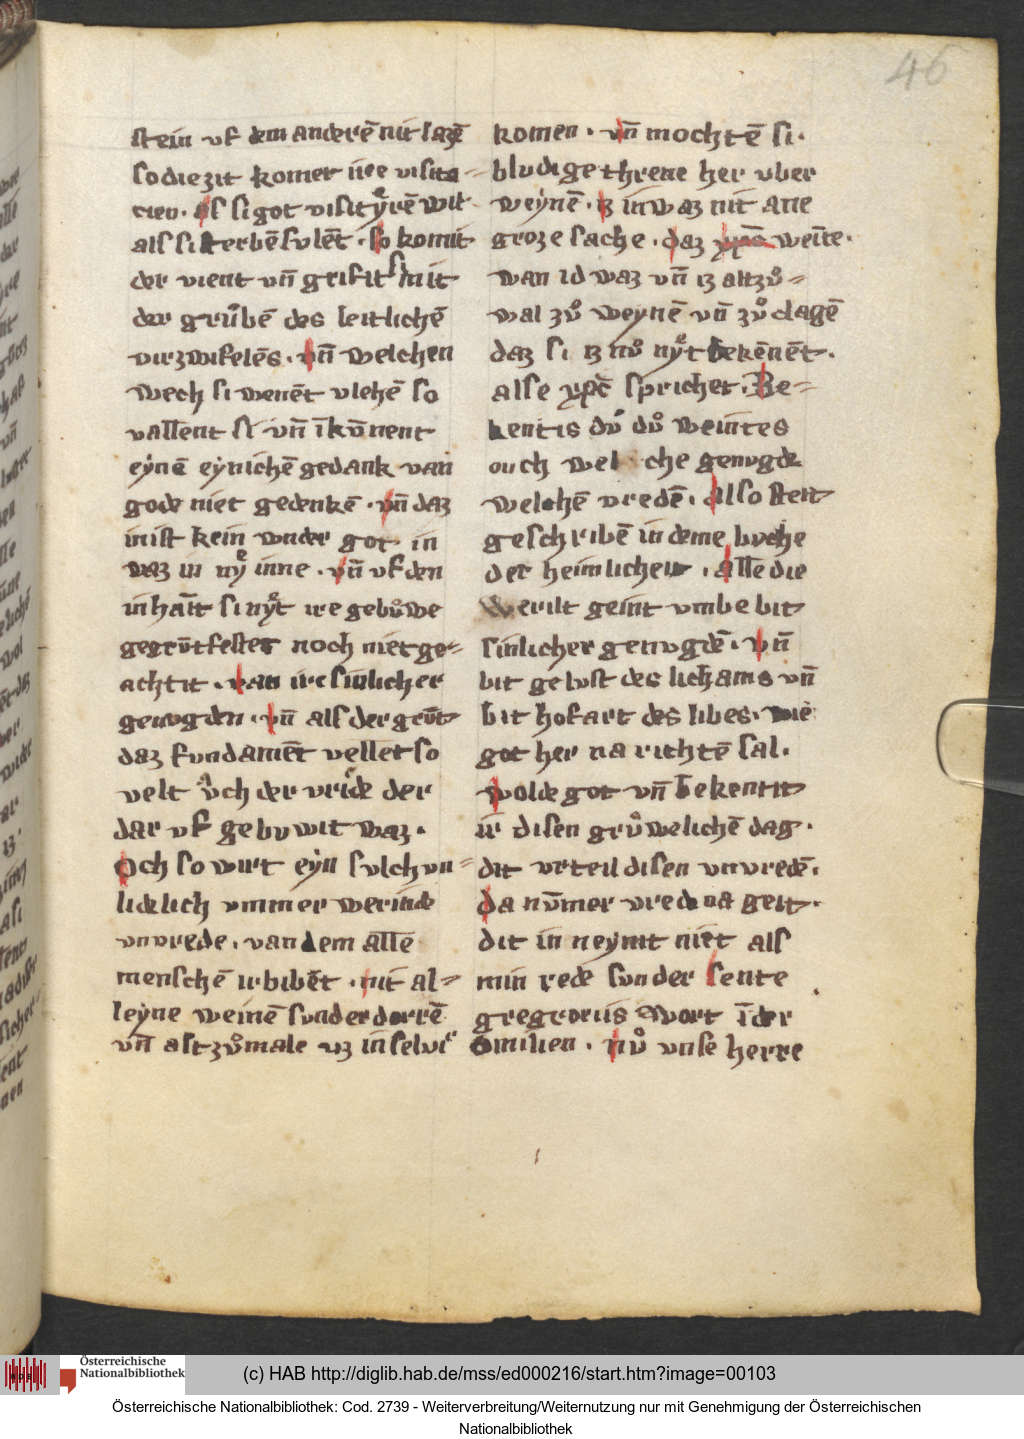 46
stein vf dem anderē nit lazē
so die zit komet ure visita-
cien. als si got visityrē wil
als si sterbē sulēt. so komit
der vient vn̄ grifit si mit
der grůbē des leitlichē
virzwifelēs. vn̄ welchen
wech si wenēt vlehē so
vallent si vn̄ īkūnent
eynē eynichē gedank van
gode niet gedenkē. vn̄ daz
in ist kein wnder got in
waz in ny inne. vn̄ vf den
in hāt si nyt ire gebůwe
gegrūtfestet noch niet ge-
achtit. van ire sinlicher
genvgden. vn̄ als der grūt
daz fundamēt vellet so
velt ůch der vride der
dar vf gebuwit waz.
Och so wirt eyn sulch vn-
lidelich vmmer werinde
vnvrede. van dem alle
menschē irbibēt. nit al-
leyne weinē sunder dorrē
vn̄ astzůmale vz in selvir
komen. vn̄ mochtē si.
bludige threne her vber
weynē. iz inwaz nit ane
groze sache. daz xp̄c weīte.
wan id waz vn̄ iz altzů-
wal zů weynē vn̄ zů clagē
daz si iz nů nyt bekēnēt.
alse xp̄c sprichet. Be-
kentis dv́ dů weintes
ouch wel che genvgde
welchē vredē. also steit
geschribē in deme buche
der heimlicheit. alle die
werilt geint vmbe bit
sinlicher genvgdē. vn̄
bit gelust des lichams vn̄
bit hofart des libes. wie
got her na richtē sal.
wolde got vn̄ bekentit
ir disen grůwelichē dag.
dit vrteil disen vnvredē.
da nūmer vrede na geit.
dit in neymt niet als
min rede sunder sente
gregoriis wort īder
Omilien. nů vnse herre
(c) HAB http://diglib.hab.de/mss/ed000216/start.htm?image=00103
Österreichische Nationalbibliothek
Österreichische Nationalbibliothek: Cod. 2739 - Weiterverbreitung/Weiternutzung nur mit Genehmigung der Österreichischen
Nationalbibliothek